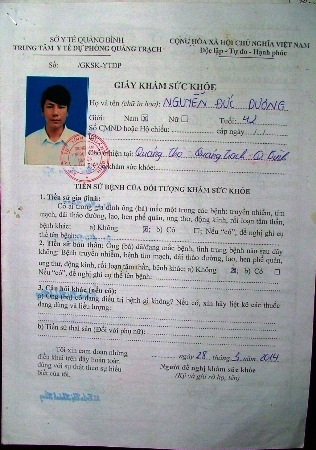 SỞ Y TẾ QUẢNG BÌNH
TRUNG TÂM Y TẾ DỰ PHÒNG QUẢNG TRẠCH
CỘNG HÒA XÃ HỘI CHỦ NGHĨA VIỆT NAM
Độc lập - Tự do - Hạnh phúc
Số: /GKSK-YTDP
GIẤY KHÁM SỨC KHỎE
Họ và tên (chữ in hoa): NGUYỄN ĐỨC DƯƠNG
Giới: Nam Nữ Tuổi: 42
Số CMND hoặc Hộ chiếu: cấp ngày / /
Chỗ ở hiện tại: Quảng Thọ Quảng Trạch Q Bình
khám sức khỏe:
TIỀN SỬ BỆNH CỦA ĐỐI TƯỢNG KHÁM SỨC KHỎE
1. Tiền sử gia đình:
Có ai trong gia đình ông (bà) mắc một trong các bệnh truyền nhiễm, tim
mạch, đái tháo đường, lao, hen phế quản, ung thư, động kinh, rối loạn tâm thần,
bệnh khác: a) Không b) Có Nếu "có", đề nghị ghi cụ
thể tên bệnh:
2. Tiền sử bản thân: Ông (bà) đã/đang mắc bệnh, tình trạng bệnh nào sau đây
không: Bệnh truyền nhiễm, bệnh tim mạch, đái tháo đường, lao, hen phế quản,
ung thư, động kinh, rối loạn tâm thần, bệnh khác: a) Không b) Có
Nếu "có", đề nghị ghi cụ thể tên bệnh:
3. Câu hỏi khác (nếu có):
a) Ông (bà) có đang điều trị bệnh gì không? Nếu có, xin hãy liệt kê các thuốc
đang dùng và liều lượng:
b) Tiền sử thai sản (Đối với phụ nữ):
Tôi xin cam đoan những
điều khai trên đây hoàn toàn
đúng với sự thật theo sự hiểu
biết của tôi.
ngày 28 tháng 5 năm 2014
Người đề nghị khám sức khỏe
(Ký và ghi rõ họ, tên)